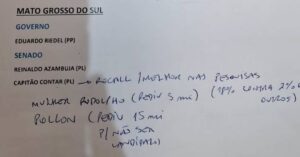 MATO GROSSO DO SUL
GOVERNO
EDUARDO RIEDEL (PP)
SENADO
REINALDO AZAMBUJA (PL)
CAPITÃO CONTAR (PL) → RECALL / MELHOR NAS PESQUISAS
MULHER RODOLFHO (PEDIU 5 mi) ( % CONTRA 2% OUTROS)
POLLON (PEDIU 15 mi
P/ NÃO SER
CANDIDATO